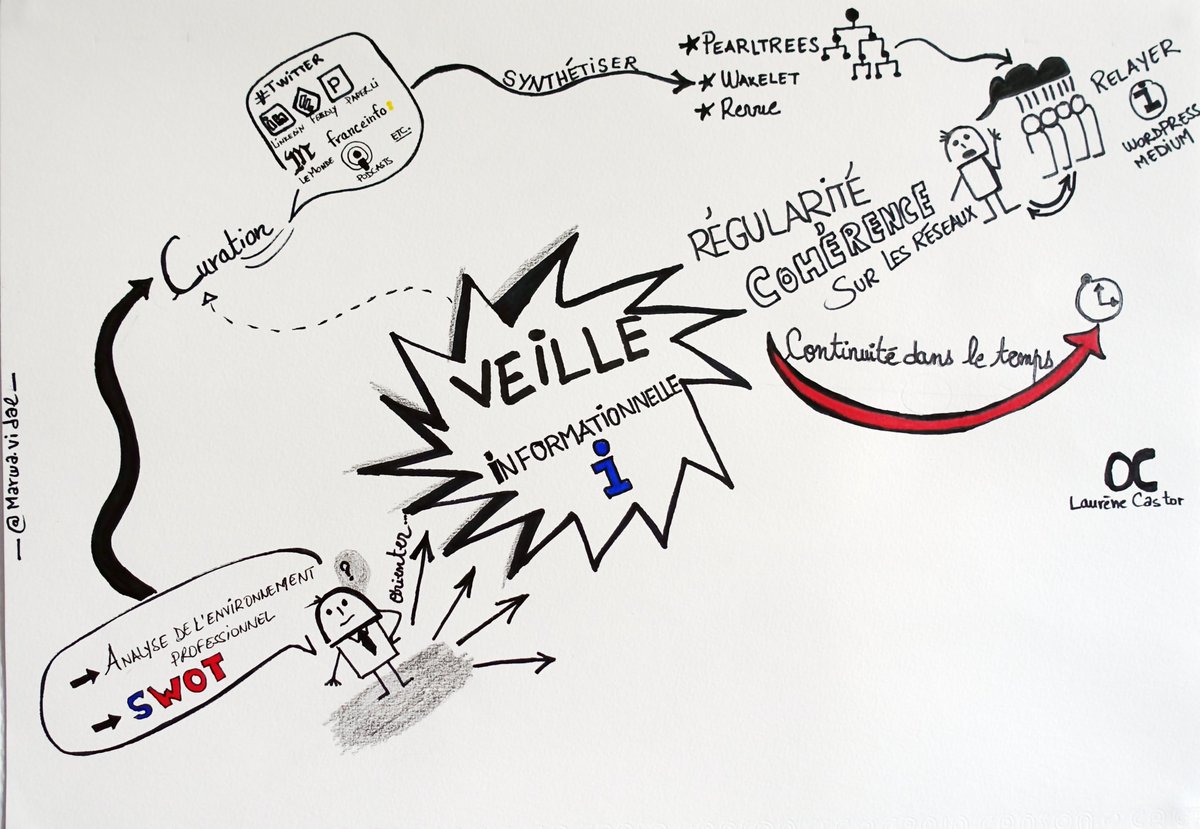 #TWITTER
LINKEDIN
FEEDLY
PAPER.LI
P
M
LE MONDE
franceinfo:
PODCASTS
ETC.
SYNTHÉTISER
PEARLTREES
WAKELET
RELAYER
i
WORDPRESS
MEDIUM
Curation
RÉGULARITÉ
COHÉRENCE
SUR LES RÉSEAUX
Continuité dans le temps
VEILLE
INFORMATIONNELLE
i
orienter...
?
ANALYSE DE L'ENVIRONNEMENT
PROFESSIONNEL
SWOT
OC
Laurène Castor
— @Marwa.vidal —